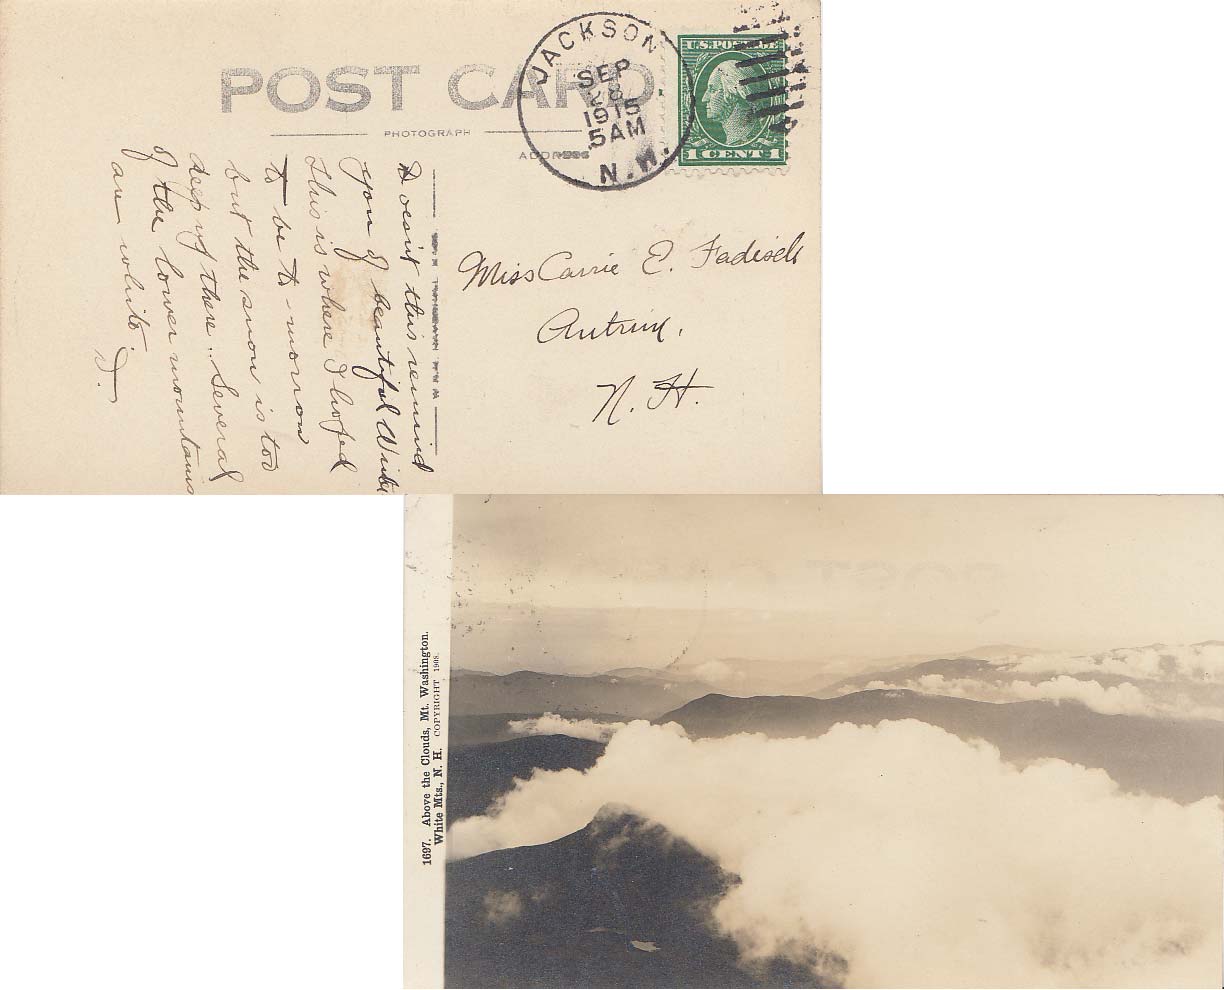 POST CARD
PHOTOGRAPH
ADDRESS
JACKSON
SEP
28
1915
5AM
N.H.
U.S. POSTAGE
1 CENT 1
Miss Carrie E.
Antrim.
N. H.
Doesn't this remind
you of beautiful
This is where I hoped
to be to-morrow
but the snow is too
deep up there. Several
of the lower mountains
are white.
I.
1697. Above the Clouds, Mt. Washington.
White Mts., N. H. COPYRIGHT 1908.